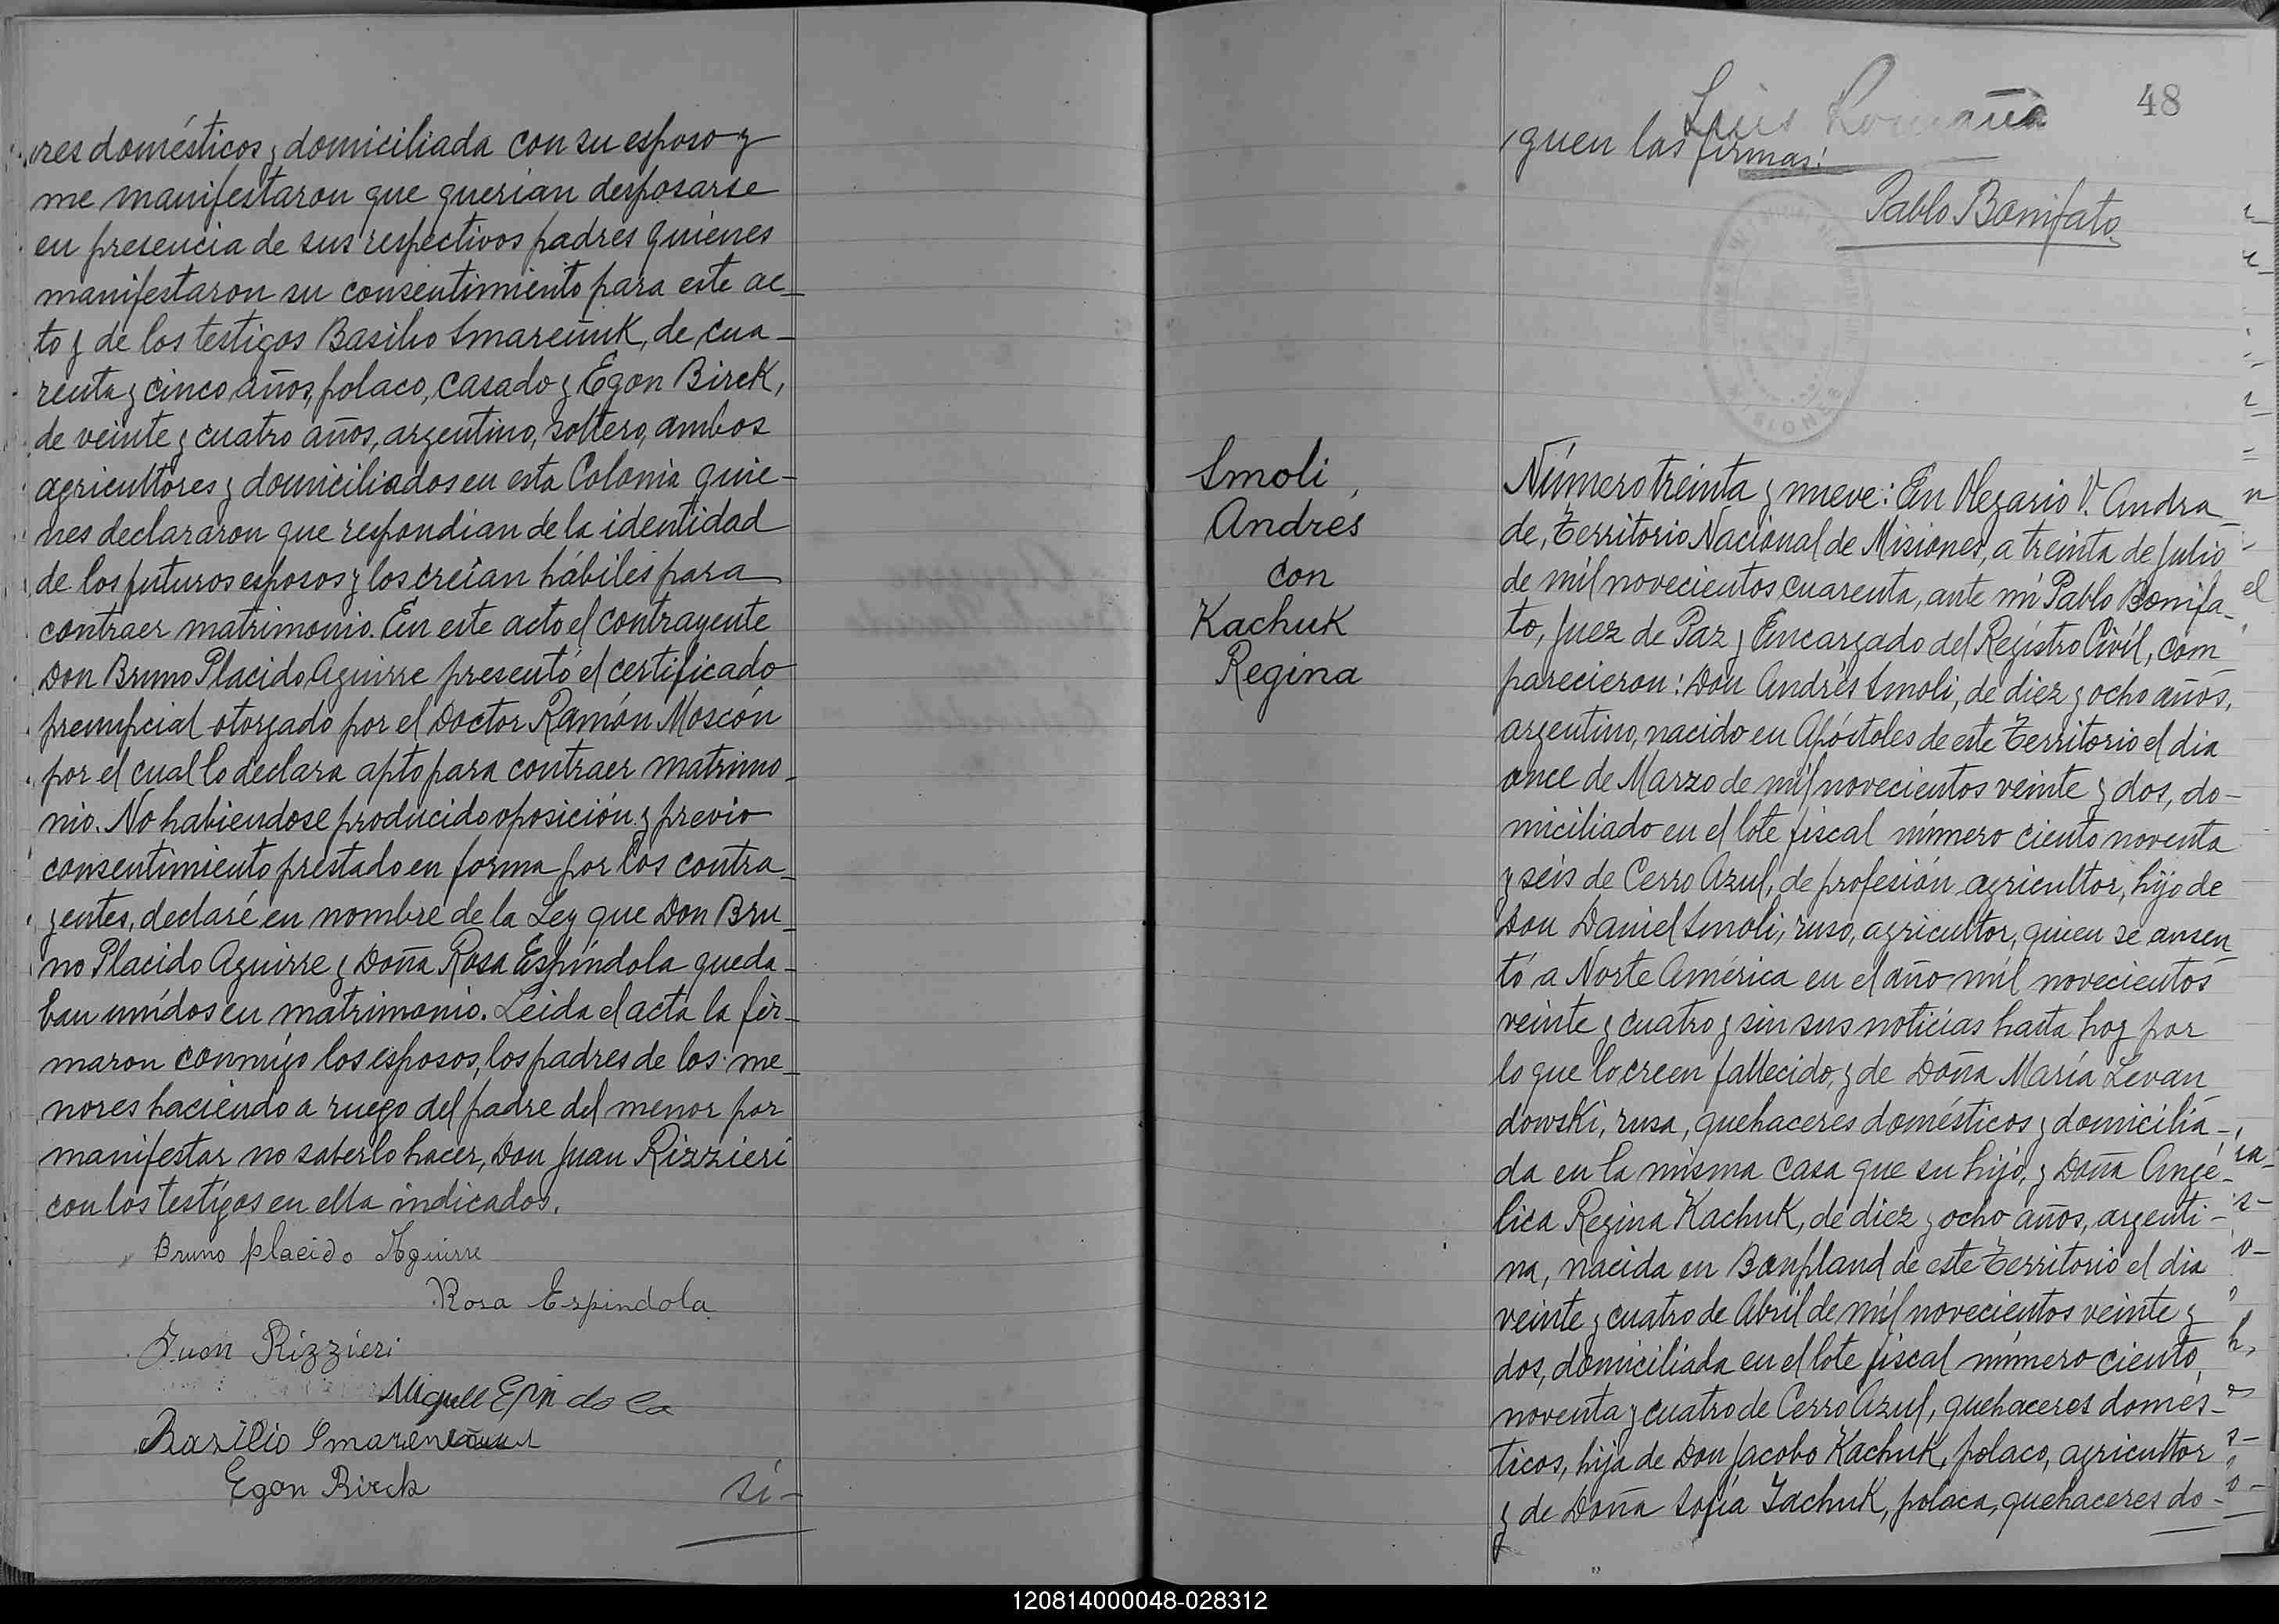 res domésticos y domiciliada con su esposo y
me manifestaron que querian desposarse
en presencia de sus respectivos padres quiénes
manifestaron su consentimiento para este ac_
to y de los testigos Basilio Smareñuk, de cua_
renta y cinco años, polaco, casado y Egon Birck,
de veinte y cuatro años, argentino, soltero, ambos
agricultores y domiciliados en esta Colonia quie-
nes declararon que respondian de la identidad
de los futuros esposos y los creían hábiles para
contraer matrimonio. En este acto el contrayente
Don Bruno Placido Aguirre presentó el certificado
prenupcial otorgado por el Doctor Ramón Moscón
por el cual lo declara apto para contraer matrimo_
nio. No habiendose producido oposición y previo
consentimiento prestado en forma por los contra_
yentes, declaré en nombre de la Ley que Don Bru_
no Placido Aguirre y Doña Rosa Espíndola queda_
ban unídos en matrimonio. Leida el acta la fir_
maron conmigo los esposos, los padres de los me_
nores haciendo a ruego del padre del menor por
manifestar no saberlo hacer, Don Juan Rizzieri
con los testigos en ella indicados.
Bruno placido Aguirre
Rosa Espindola
Juan Rizzieri
Miguel
Basilio
Egon Birck
si-
48
Luis Romaña
guen las firmas:
Pablo Bonifato
Smoli
Andres
con
Kachuk
Regina
Número treinta y nueve: En Olegario V. Andra_
de, Territorio Nacional de Misiones, a treinta de Julio
de mil novecientos cuarenta, ante mi Pablo Bonifa_
to, Juez de Paz y Encargado del Registro Civil, com
parecieron: Don Andrés Smoli, de diez y ocho años,
argentino, nacido en Apóstoles de este Territorio el dia
once de Marzo de mil novecientos veinte y dos, do-
miciliado en el lote fiscal número ciento noventa
y seis de Cerro Azul, de profesión agricultor, hijo de
Don Daniel Smoli, ruso, agricultor, quien se ausen_
tó a Norte América en el año mil novecientos
veinte y cuatro y sin sus noticias hasta hoy por
lo que lo creen fallecido, y de Doña María Levan_
dowski, rusa, quehaceres domésticos y domicilia_
da en la misma casa que su hijo, y Doña Angé_
lica Regina Kachuk, de diez y ocho años, argenti-
na, nacida en Bonpland de este Territorio el dia
veinte y cuatro de Abril de mil novecientos veinte y
dos, domiciliada en el lote fiscal número ciento
noventa y cuatro de Cerro Azul, quehaceres domés_
ticos, hija de Don Jacobo Kachuk, polaco, agricultor
y de Doña Sofía Iachuk, polaca, quehaceres do-
120814000048-028312